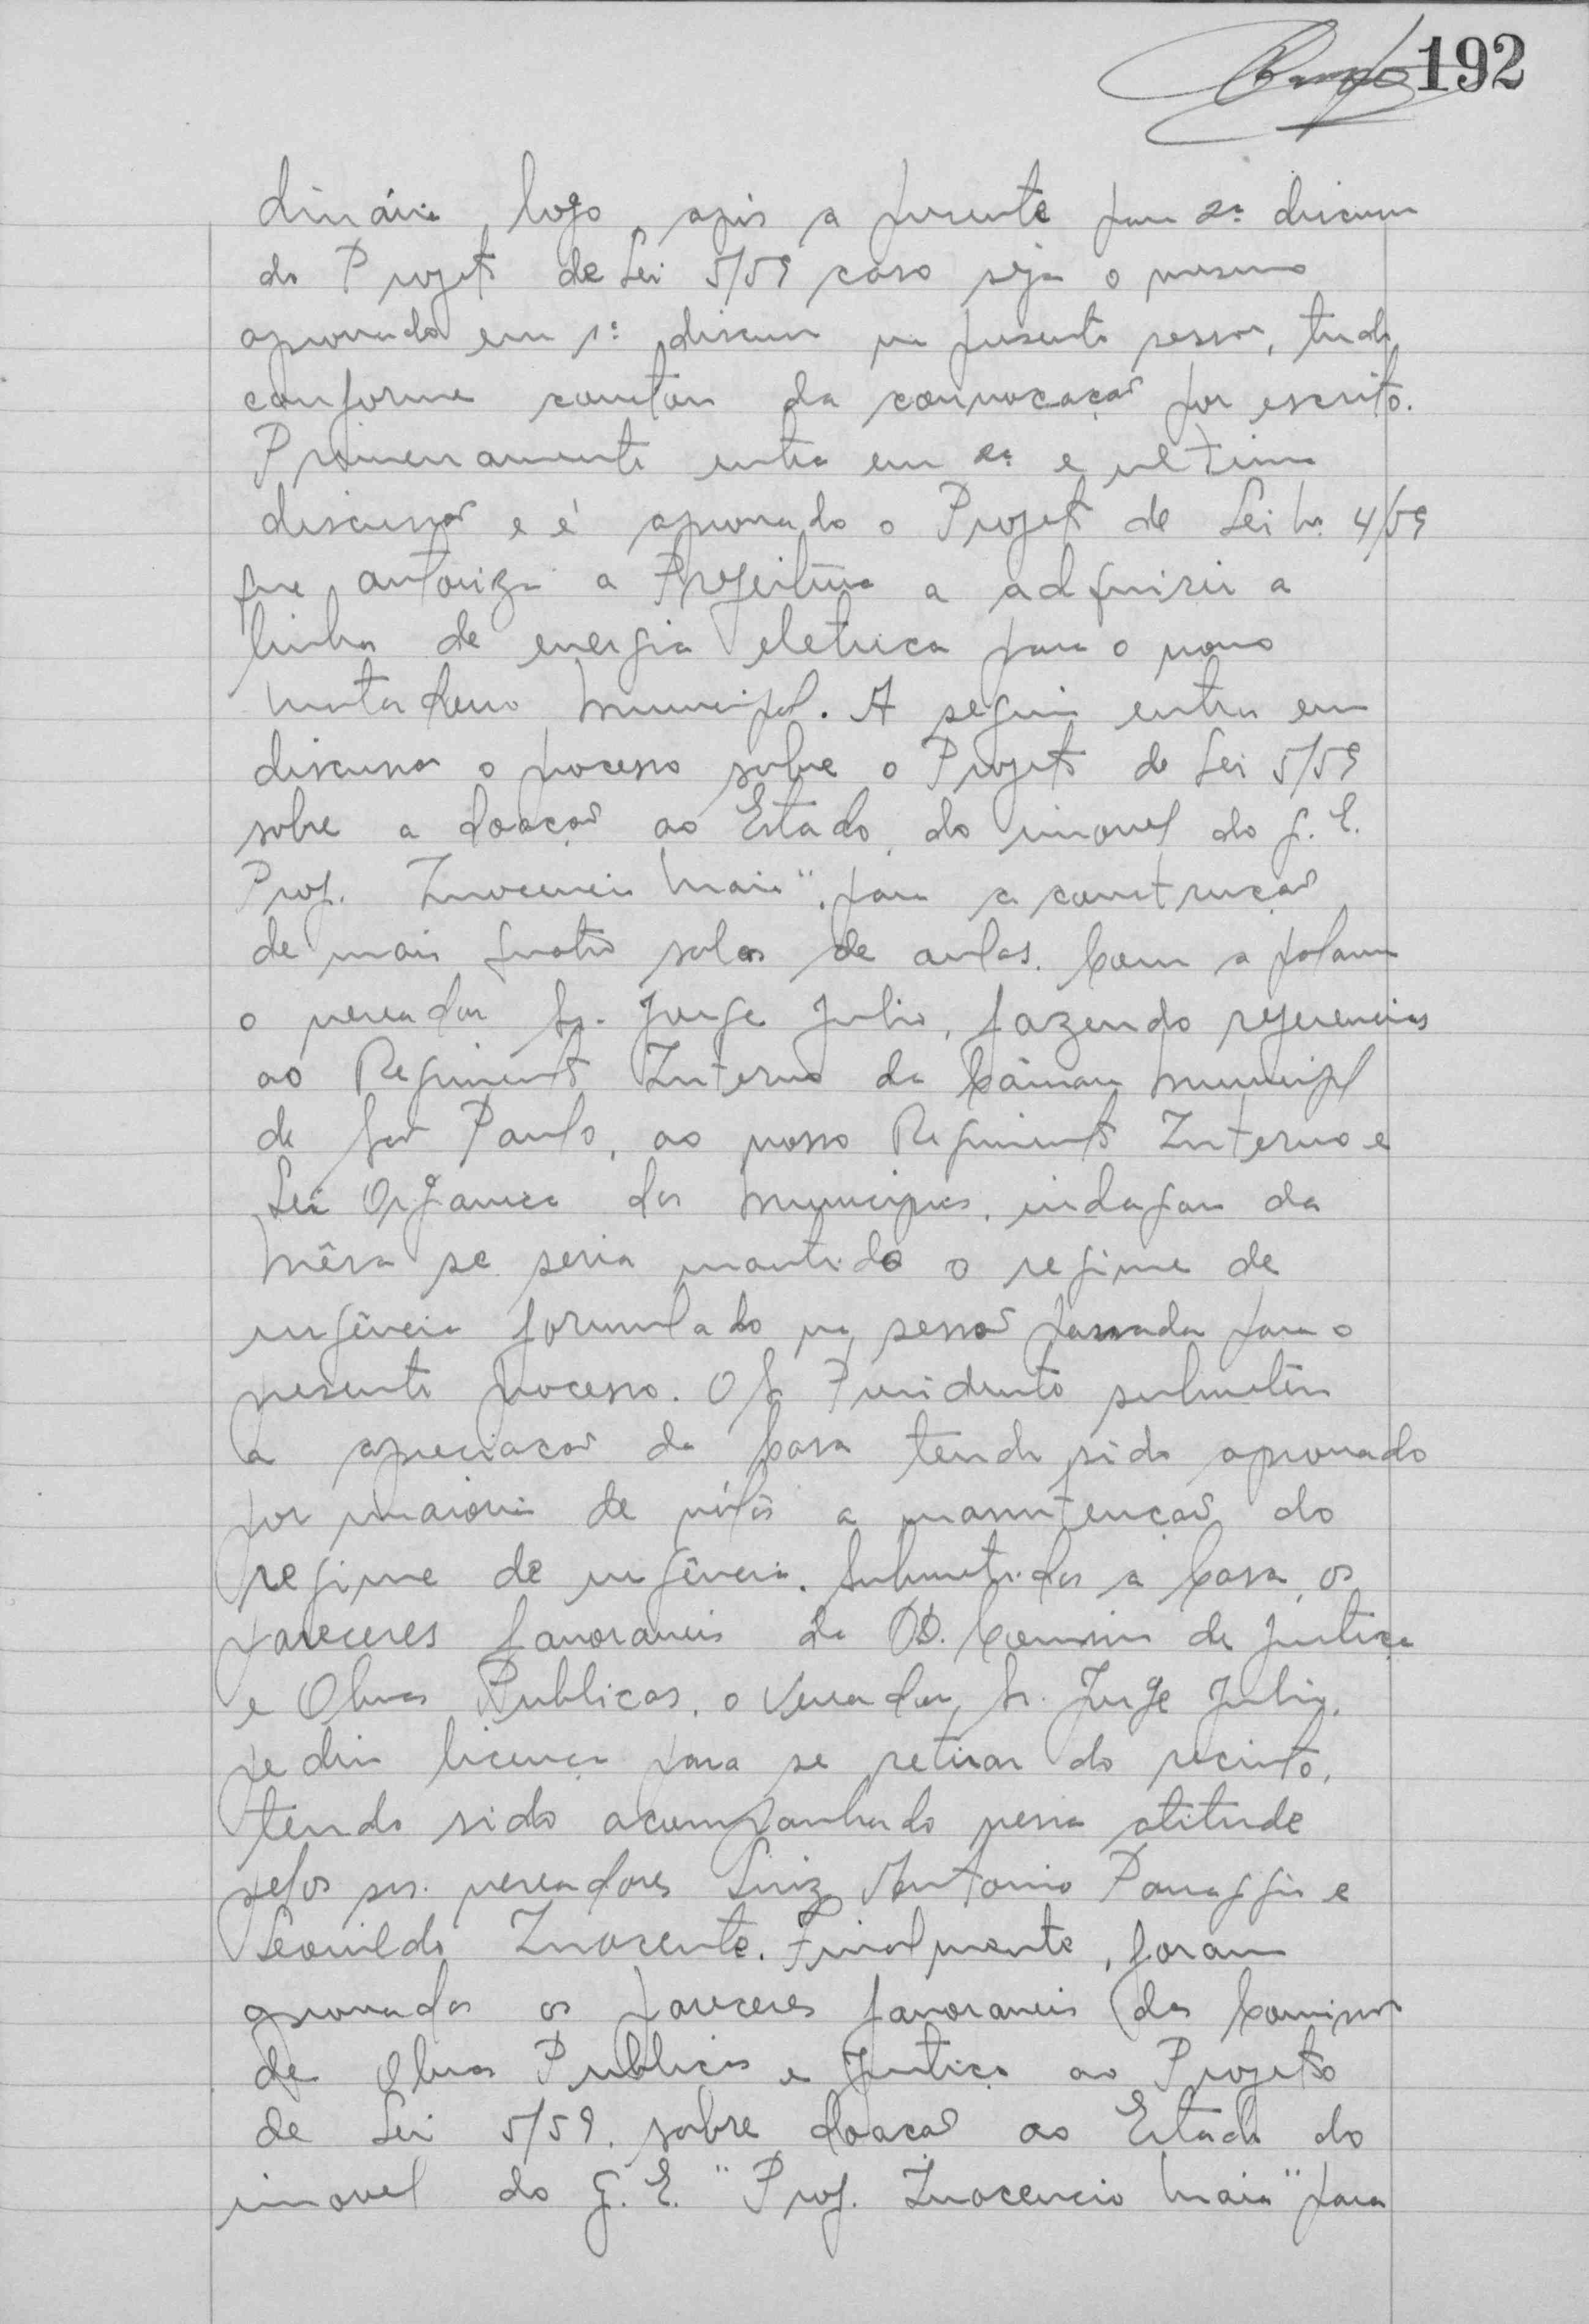 192
dinária logo após a presente para 2ª discussão
do Projeto de Lei 5/59 caso seja o mesmo
aprovado em 1ª discussão na presente sessão, tudo
conforme constou da convocação por escrito.
Primeiramente entra em 2ª e ultima
discussão e é aprovado o Projeto de Lei no 4/59
que autoriza a Prefeitura a adquirir a
linha de energia eletrica para o novo
matadouro Municipal. A seguir entra em
discussão o processo sobre o Projeto de Lei 5/59
sobre a doação ao Estado, do imovel do G. E.
Prof. Inocencio Maia", para a construção
de mais quatro salas de aulas. Com a palavra
o vereador Sr. Jorge Julio, fazendo referencias
ao Regimento Interno da Câmara Municipal
de São Paulo, ao nosso Regimento Interno e
Lei Organica dos Municipios, indagou da
Mêsa se seria mantido o regime de
urgência formulado na sessão passada para o
presente processo. O Sr. Presidente submeteu
a apreciação da Casa tendo sido aprovado
por maioria de vótos a manutenção do
regime de urgência. Submetidos a Casa, os
pareceres favoraveis da DD. Comissão de Justiça
e Obras Publicas, o Vereador, Sr. Jorge Julio,
pediu licença para se retirar do recinto,
tendo sido acompanhado nessa atitude
pelos srs. vereadores Luiz Antonio Panaggio e
Leonildo Inocente. Finalmente, foram
aprovados os pareceres favoraveis das Comissões
de Obras Publicas e Justiça ao Projeto
de Lei 5/59, sobre doação ao Estado do
imovel do G. E. "Prof. Inocencio Maia" para